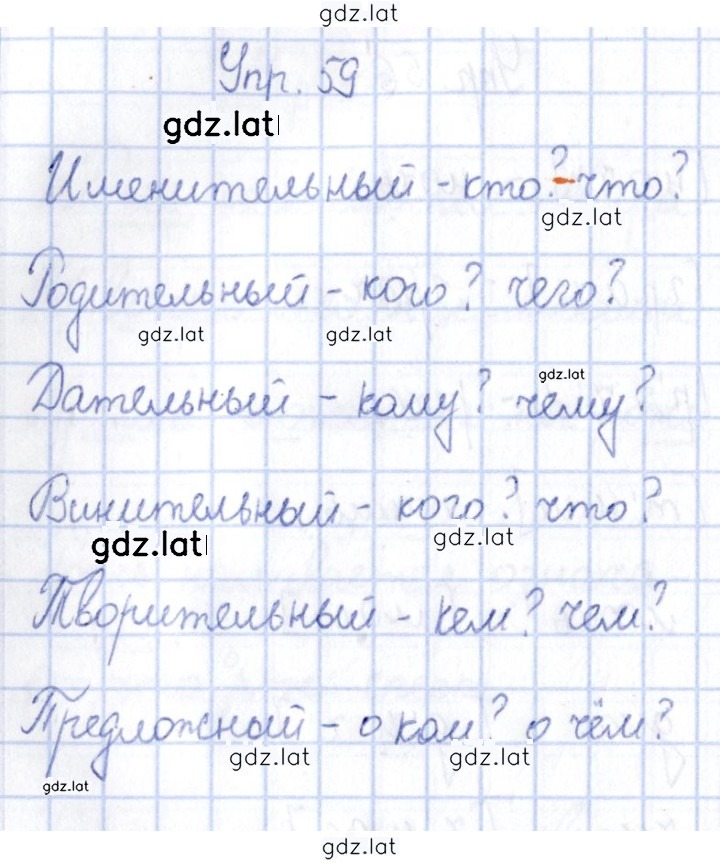 gdz.lat
Упр. 59
gdz.lat
Именительный - кто? - что?
gdz.lat
Родительный - кого? чего?
gdz.lat gdz.lat
gdz.lat
Дательный - кому? чему?
Винительный - кого? что?
gdz.lat gdz.lat
Творительный - кем? чем?
Предложный - о ком? о чём?
gdz.lat gdz.lat
gdz.lat
gdz.lat